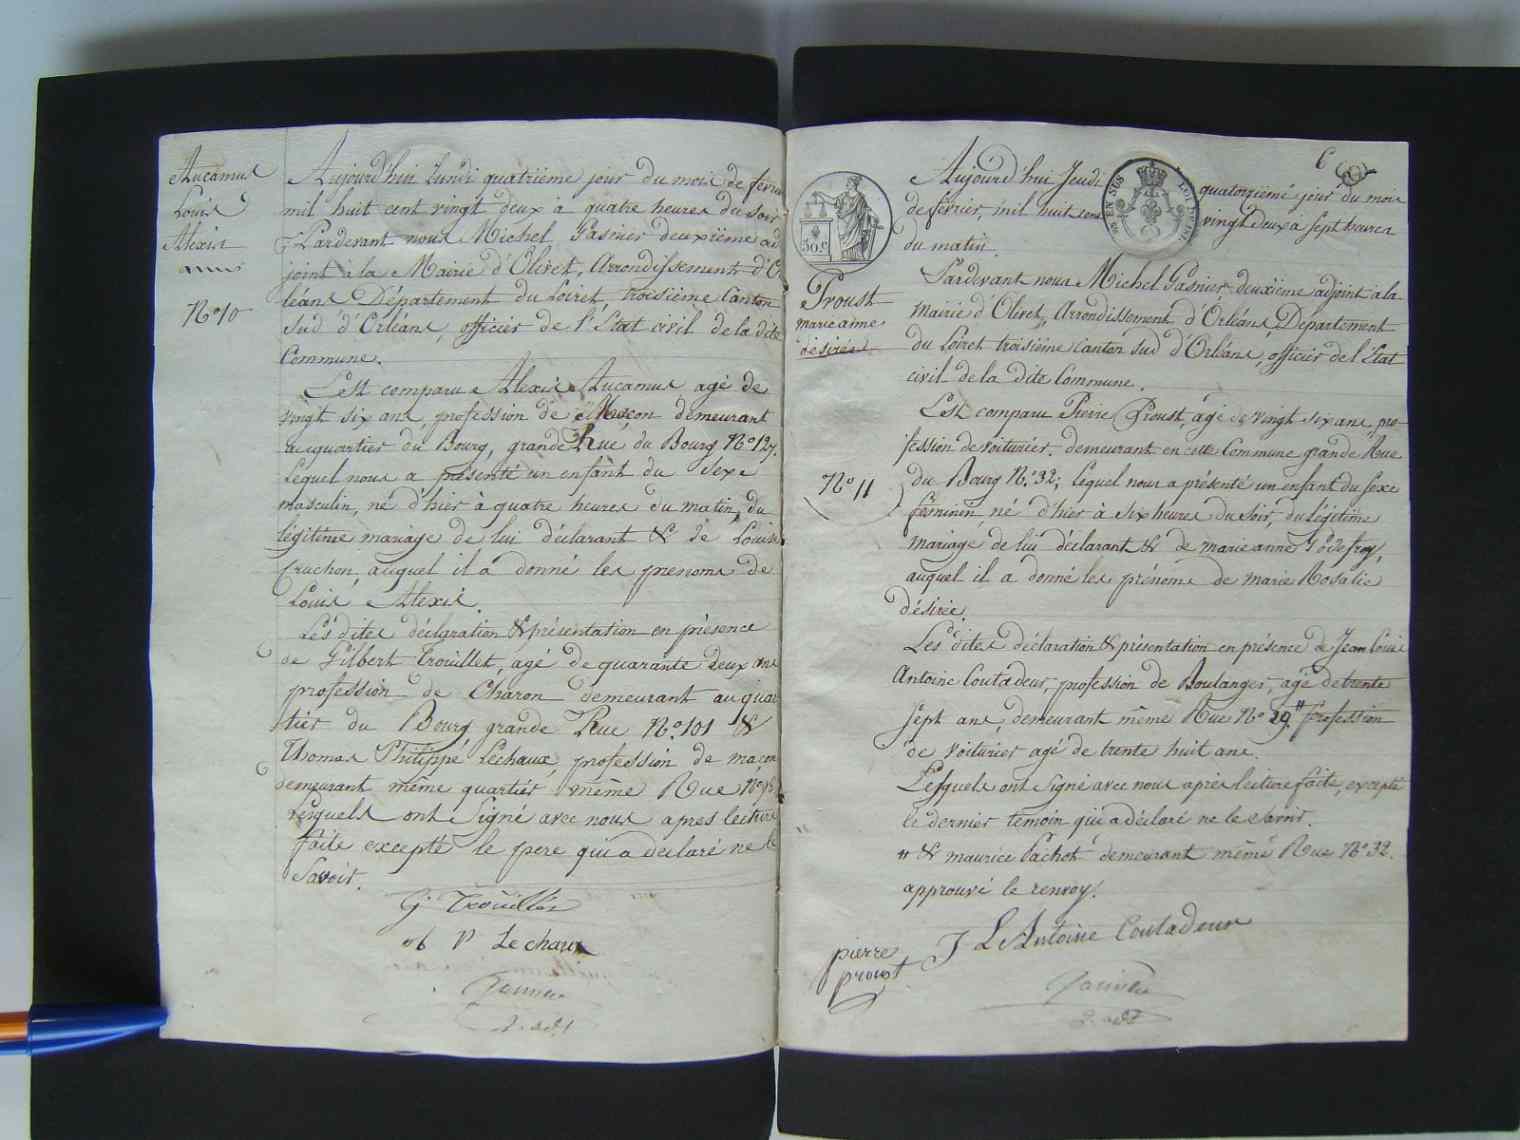 Aucamus
Louis
Alexis
N.º 10
Aujourd'hui Lundi quatrième jour du mois de févri
mil huit cent vingt deux à quatre heures du soir
Pardevant nous Michel Gasnier deuxième ad
joint à la Mairie d'Olivet, Arrondissement d'Or
léans Département du Loiret, troisième Canton
Sud d'Orléans, officier de l'Etat civil de la dite
Commune.
Est comparu Alexis Aucamus agé de
vingt six ans, profession de Maçon demeurant
au quartier du Bourg, grande Rue du Bourg N.º 127.
Lequel nous a présenté un enfant du Sexe
masculin, né d'hier à quatre heures du matin, du
légitime mariage de lui déclarant & de Louise
Cruchon, auquel il a donné les prenoms de
Louis Alexis.
Les dites déclaration & présentation en présence
de Gilbert Trouillet, agé de quarante deux ans
profession de Charon demeurant au quar
tier du Bourg grande Rue N.º 101 &
Thomas Philippe Lechaux, profession de maçon
demeurant même quartier même Rue N.º
Lesquels ont Signé avec nous apres lecture
faite excepté le pere qui a déclaré ne le
Savoir.
G. Trouillet
P Le chaux
Gasnier
2. adt
6
30 C
EN SUS
LOI DE 
Proust
marie anne
désirée
N.º 11
Aujourd'hui Jeudi quatorzième jour du mois
de février, mil huit cent vingt deux à sept heures
du matin.
Pardevant nous Michel Gasnier deuxième adjoint à la
Mairie d'Olivet, Arrondissement d'Orléans, Département
du Loiret troisième Canton Sud d'Orléans, officier de l'Etat
civil de la dite Commune.
Est comparu Pierre Proust, agé de vingt six ans, pro-
fession de voiturier, demeurant en cette Commune grande Rue
du Bourg N.º 32; lequel nous a présenté un enfant du sexe
féminin, né d'hier à six heures du soir, du légitime
mariage de lui déclarant & de marie anne Godefroy,
auquel il a donné les prénoms de marie Rosalie
désirée.
Les dites déclaration & présentation en présence de Jean Louis
Antoine Coutadeur, profession de Boulanger, agé de trente
Sept ans, demeurant même Rue N.º 29 " profession
de voiturier agé de trente huit ans.
Lesquels ont signé avec nous après lecture faite, excepté
le dernier témoin qui a déclaré ne le savoir.
" & maurice Pachot demeurant même Rue N.º 32.
approuvé le renvoy.
pierre
proust
J L Antoine Coutadeur
Gasnier
2. adt